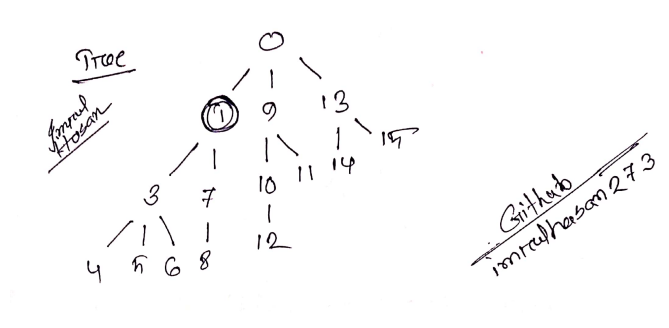 Tree
Imrul
Hasan
0
1 9 13
3 7 10 11 14 15
4 5 6 8 12
Github
imrulhasan273